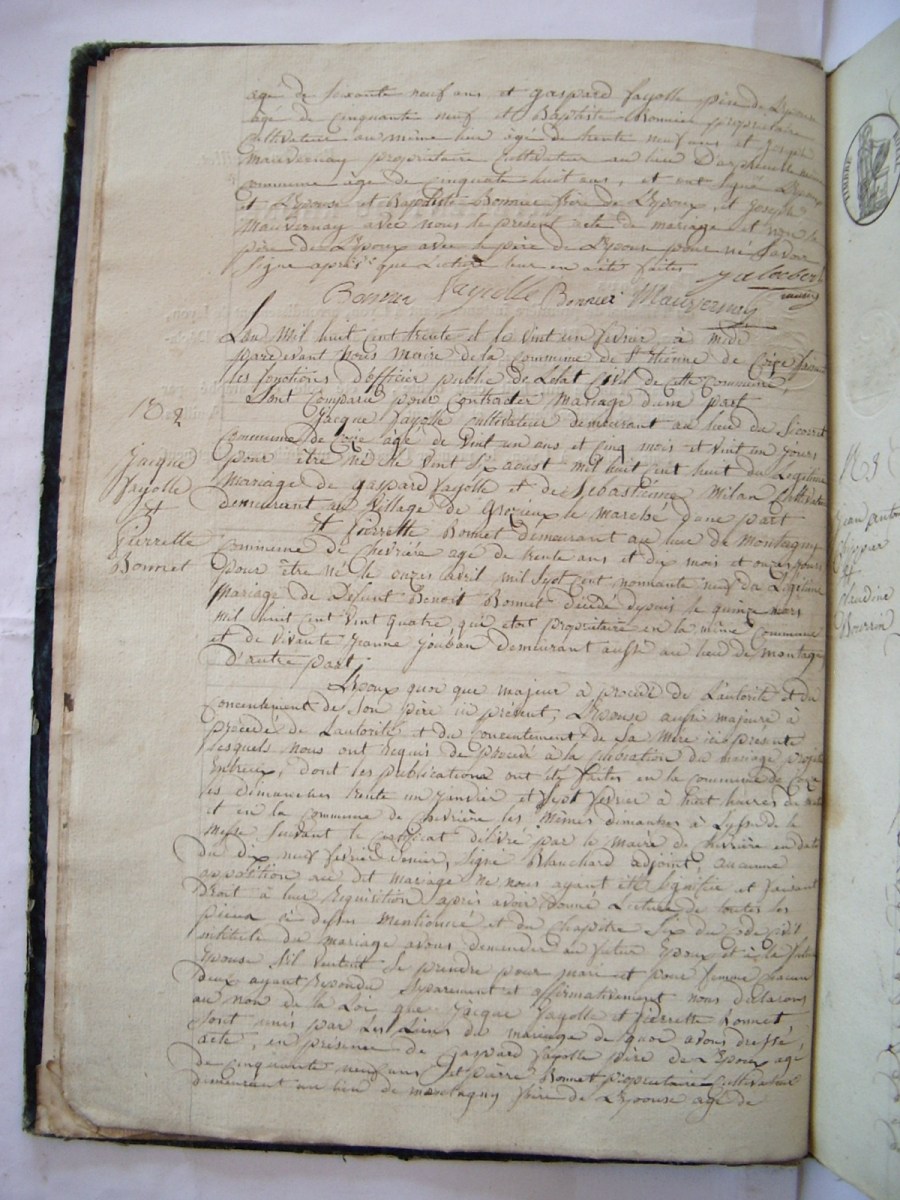 âgé de soixante neuf ans et gaspard fayolle père de L'épouse
âgé de cinquante neuf et Baptiste Bonnier proprietaire
Cultivateur au même lieu âgé de trente neuf ans et joseph
Mauvernay proprietaire Cultivateur au lieu
commune âgé de cinquate huit ans, et ont signé L'Epoux
et L'Epouse et Baptiste Bonnier frère de L'Epoux, et joseph
Mauvernay avec nous le present acte de mariage et non le
père de L'Epoux avec le père de L'Epouse pour né Savoir
Signé après que Lecture leur en a été faites
Bonnier fayolle Bonnier Mauvernay
L'an Mil huit cent trente et le vint un fevrier, à midi
pardevant nous maire de la commune de St Etienne de Coize
les fonctions d'officier public de Letat Civil de cette Commune,
Sont Comparu pour Contracter Mariage d'une part
Jacque fayolle cultivateur demeurant au lieu du
Commune de Coize âgé de vint un ans et cinq mois et vint un jours
pour être né le vint Six aoust mil huit cent huit du Legitime
Mariage de gaspard fayolle et de Sébastienne Milan Cultivate
demeurant au village de Grezieux le Marché d'une part
Et Pierrette Bonnet demeurant au lieu de Montagny
Commune de Chevriere age de trente ans et dix mois et onzes jours
pour être né le onzes avril mil sept cent nonnante neuf du Legitime
Mariage de defunt Benoit Bonnet décédé depuis le quinze mars
mil huit cent vint quatre qui etoit proprietaire en la même Commune
et de vivante Jeanne jouban demeurant aussi au lieu de montagny
D'autre part,
L'Epoux quoi que majeur à procédé de L'autorité et du
Concentement de Son père ici présent, L'Epouse aussi majeure à
procédé de L'autorité et du Concentement de Sa mère ici presente
lesquels nous ont Requis de procedé à la celebration du mariage projeté
Entreux, dont les publications ont été faites en la commune de Coize
les dimanches trente un janvier et sept fevrier à huit heures du matin
et en la Commune de Chevrière les mêmes dimanches à L'issue de la
Messe Suivant le Certificat délivré par le Maire de Chevriere en date
du dix neuf fevrier dernier, Signé Blanchard adjoint, aucunne
opposition au dit mariage ne nous ayant été Signifiée et faisant
Droit à leur Requisition après avoir donné Lecture de toutes les
pieces ci dessus Mentionné et du Chapitre Six du Code Civil
institute du mariage avons demander au futur Epoux et à la future
Epouse S'il veulent Se prendre pour mari et pour femme chacun
deux ayant Repondu Separement et affirmativement nous declarons
au non de la Loi que Jacque fayolle et Pierrette Bonnet
Sont unis par Les Liens du mariage de quoi avons dressé
acte, en présence de Gaspard fayolle père de L'Epoux agé
de Cinquante neuf ans et pierre Bonnet proprietaire Cultivateur
demeurant au lieu de montagny frère de L'Epouse agé de
No 2
Jacque
fayolle
Et
Pierrette
Bonnet
No 3
Jean antoi
Et
Claudine
TIMBRE